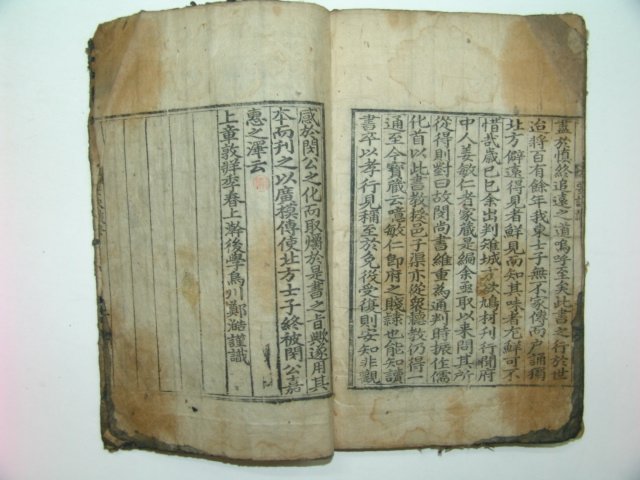 盡於愼終追遠之道嗚呼至矣此書之行於世
迨將百有餘年我東士子無不家傳而戶誦獨
北方僻遠得見者鮮見而知其味者尤鮮可不
惜哉歲己巳余出判雉城才欲鳩材刊行聞府
中人姜敏仁者家藏是編余亟取以來問其所
從得則對曰故閔尚書維重爲通判時振作儒
化首以此書敎授邑子渠亦從衆聽敎仍得一
通至今寶藏云噫敏仁卽府之賤隷也能知讀
書卒以孝行見稱至於免役受復則安知非觀
感於閔公之化而取燭於是書之旨歟遂用其
本而刊之以廣模傳使北方士子終被閔公嘉
惠之澤云
上章敦牂季春上澣後學烏川鄭澔謹識